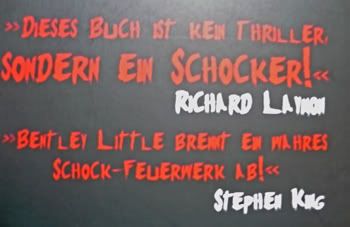 »Dieses Buch ist kein Thriller,
sondern ein Schocker!«
Richard Laymon
»Bentley Little brennt ein wahres
Schock-Feuerwerk ab!«
Stephen King